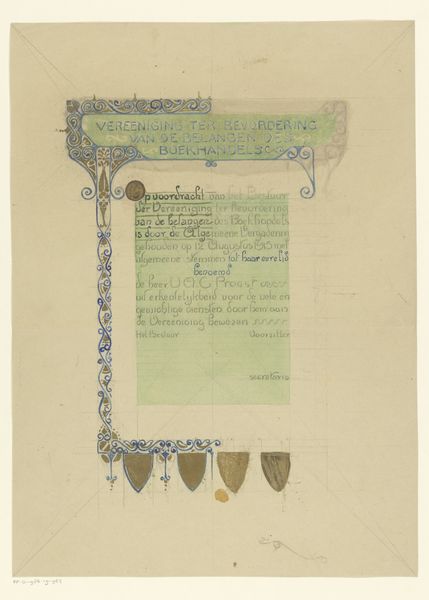 VEREENIGING TER BEVORDERING
VAN DE BELANGEN DES
BOEKHANDELS
Op voordracht van het Bestuur
der Vereeniging ter Bevordering
van de belangen des Boekhandels
is door de Algemeene Vergadering
gehouden op 12 Augustus 1913 met
algemeene stemmen tot haar eere lid
benoemd
de heer
uit erkentelijkheid voor de vele en
gewichtige diensten door hem aan
de Vereeniging bewezen
Het Bestuur Voorzitter
secretaris